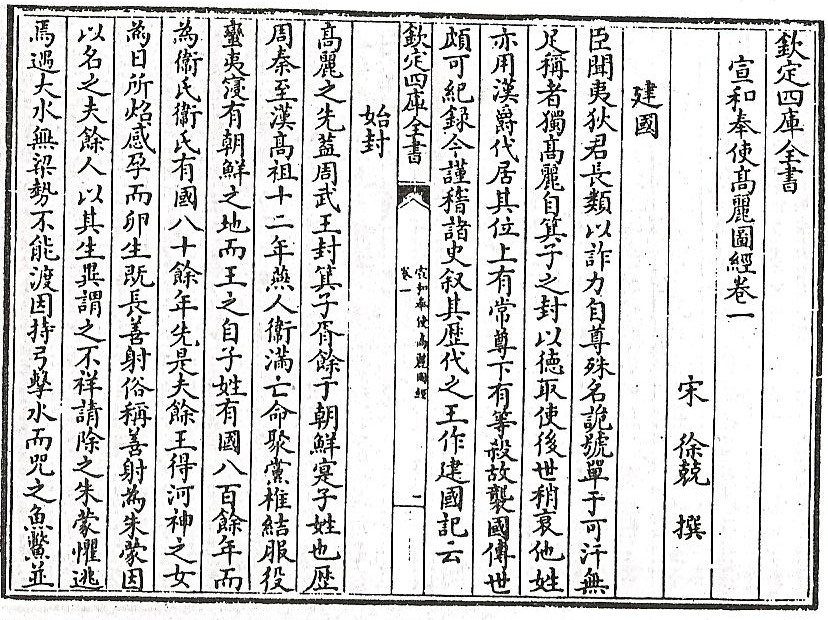 欽定四庫全書
宣和奉使高麗圖經卷一
宋 徐兢 撰
建國
臣聞夷狄君長類以詐力自尊殊名詭號單于可汗無
足稱者獨髙麗自箕子之封以徳取使後世稍衰他姓
亦用漢爵代居其位上有常尊下有等殺故襲國傳世
頗可紀録今謹稽諸史叙其歴代之王作建國記云
欽定四庫全書
宣和奉使高麗圖經
卷一
一
始封
髙麗之先葢周武王封箕子胥餘于朝鮮寔子姓也歴
周秦至漢髙祖十二年燕人衞滿亡命聚黨椎結服役
蠻夷寖有朝鮮之地而王之自子姓有國八百餘年而
為衞氏衞氏有國八十餘年先是夫餘王得河神之女
為日所炤感孕而卵生既長善射俗稱善射為朱蒙因
以名之夫餘人以其生異謂之不祥請除之朱蒙懼逃
焉遇大水無梁勢不能渡因持弓擊水而咒之魚鱉並